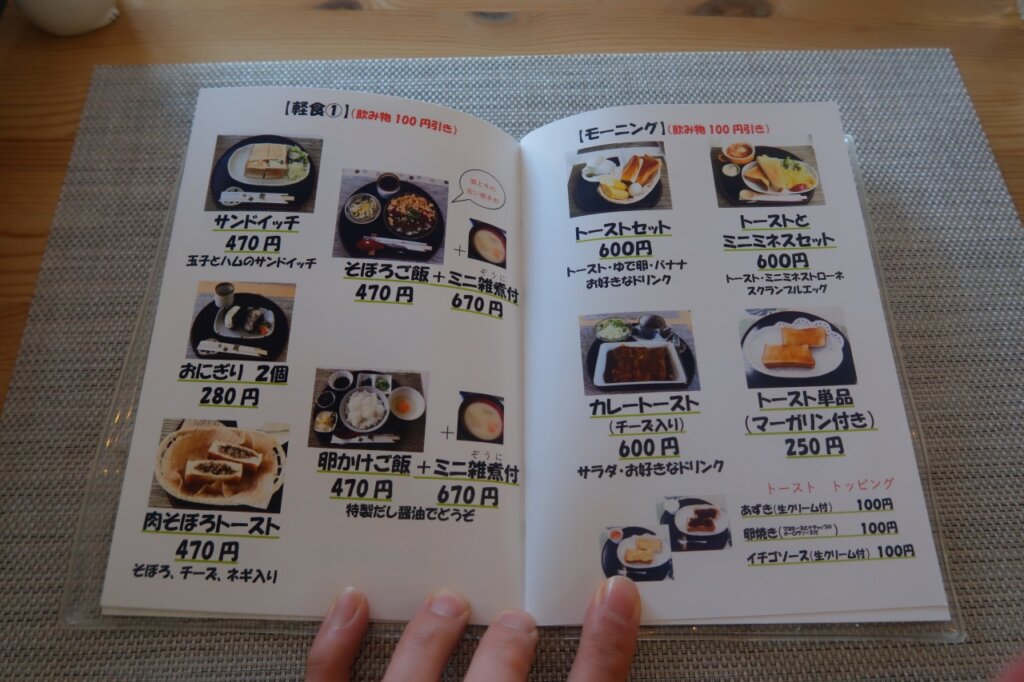 【軽食①】(飲み物100円引き)
サンドイッチ
470円
玉子とハムのサンドイッチ
おにぎり 2個
280円
肉そぼろトースト
470円
そぼろ、チーズ、ネギ入り
豚と牛の
合い挽き肉
+
そぼろご飯+ミニ雑煮付
ぞうに
470円 670円
+
卵かけご飯+ミニ雑煮付
ぞうに
470円 670円
特製だし醤油でどうぞ
【モーニング】(飲み物100円引き)
トーストセット
600円
トースト・ゆで卵・バナナ
お好きなドリンク
トーストと
ミニミネスセット
600円
トースト・ミニミネストローネ
スクランブルエッグ
カレートースト
(チーズ入り)
600円
サラダ・お好きなドリンク
トースト単品
(マーガリン付き)
250円
トースト トッピング
あずき(生クリーム付) 100円
卵焼き 100円
イチゴソース(生クリーム付) 100円